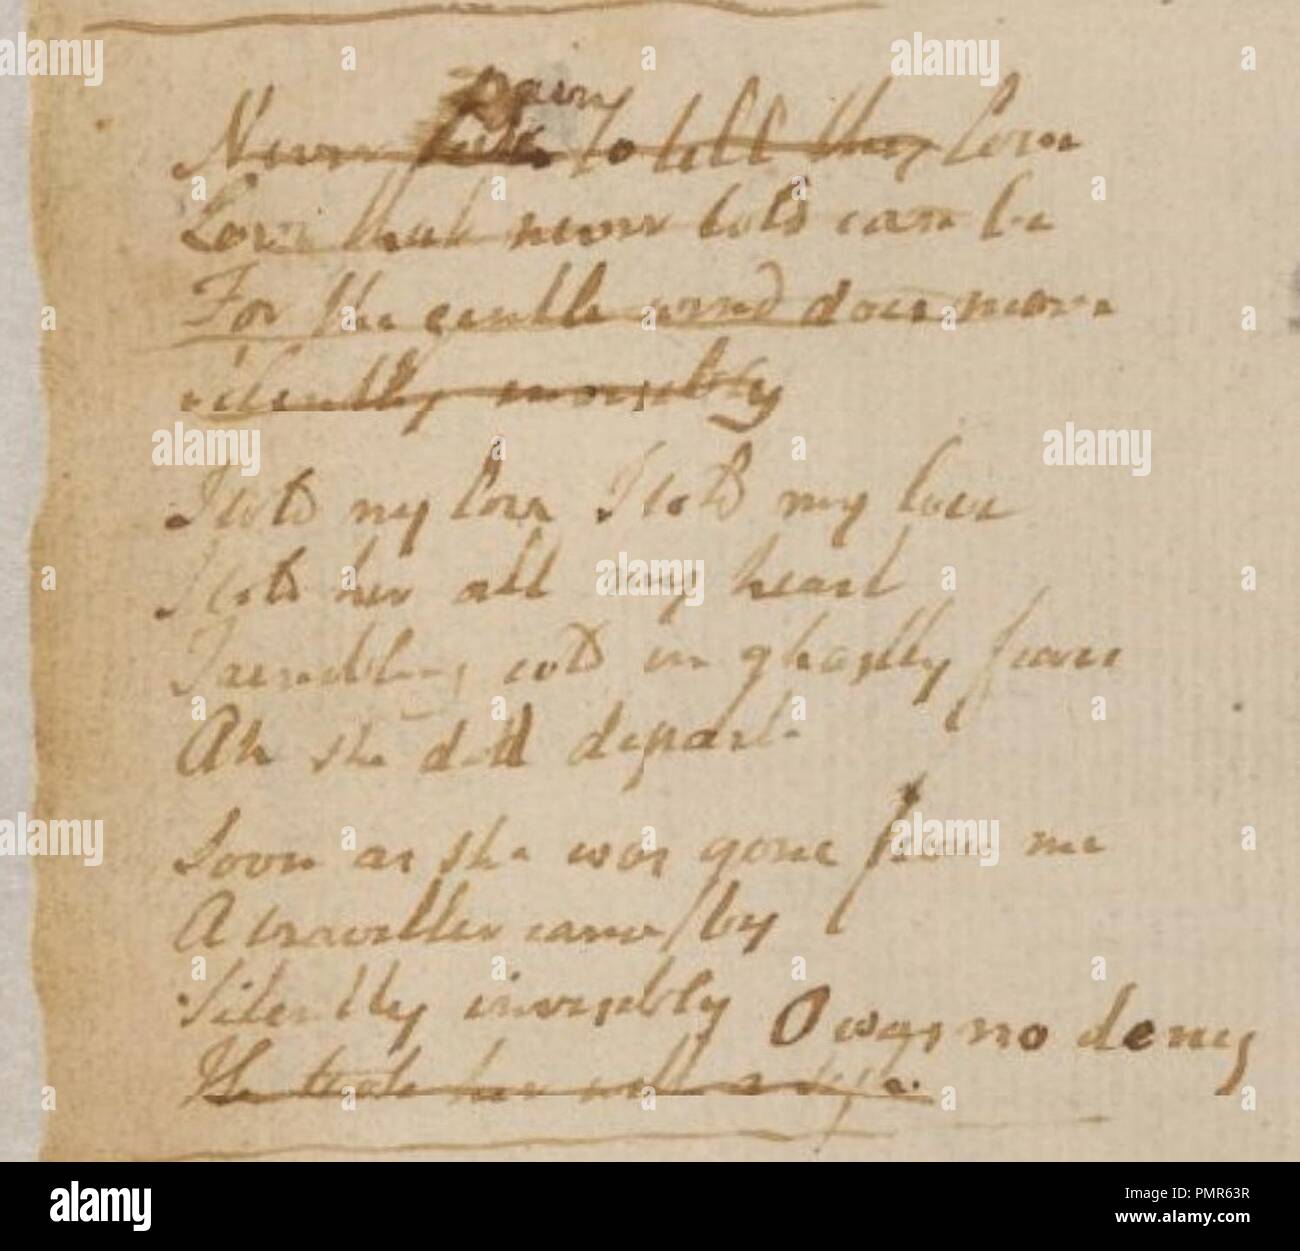 pain
Never seek to tell thy love
Love that never told can be
For the gentle wind does move
Silently invisibly
I told my love I told my love
I told her all my heart
Trembling cold in ghastly fears
Ah she doth depart
Soon as she was gone from me
A traveller came by
Silently invisibly O was no deny
He took her with a sigh.
alamy
Image ID: PMR63R
www.alamy.com